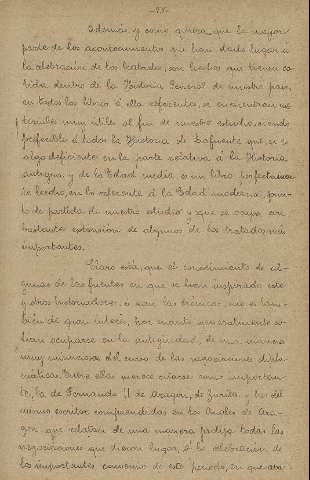 Además, y como quiera que la mayor
parte de los acontecimientos que han dado lugar a
la celebración de los tratados, son hechos que tienen ca-
bida dentro de la Historia General de nuestro país,
en todos los libros á ella referentes, se encuentran ma-
teriales muy útiles al fin de nuestro estudio, siendo
preferible á todos la Historia de Lafuente que, si es
algo deficiente en la parte relativa á la Historia
antigua, y de la Edad media, es un libro perfectamen-
te hecho, en lo referente á la Edad moderna, pun-
to de partida de nuestro estudio y que se ocupa con
bastante extensión de algunos de los tratados más
importantes.
Claro está, que el conocimiento de al-
gunas de las fuentes en que se han inspirado este
y otros historiadores, ó sean las crónicas, nos es tam-
bién de gran interés, por cuanto generalmente so-
lían ocuparse en la antigüedad, de una manera
muy minuciosa del curso de las negociaciones diplo-
máticas. Entre ellas merece citarse como importan-
te, la de Fernando II de Aragón, de Zurita, y las del
mismo escritor comprendidas en los Anales de Ara-
gón que relatan de una manera prolija todas las
negociaciones que dieron lugar, á la celebración de
los importantes convenios de este período, en que